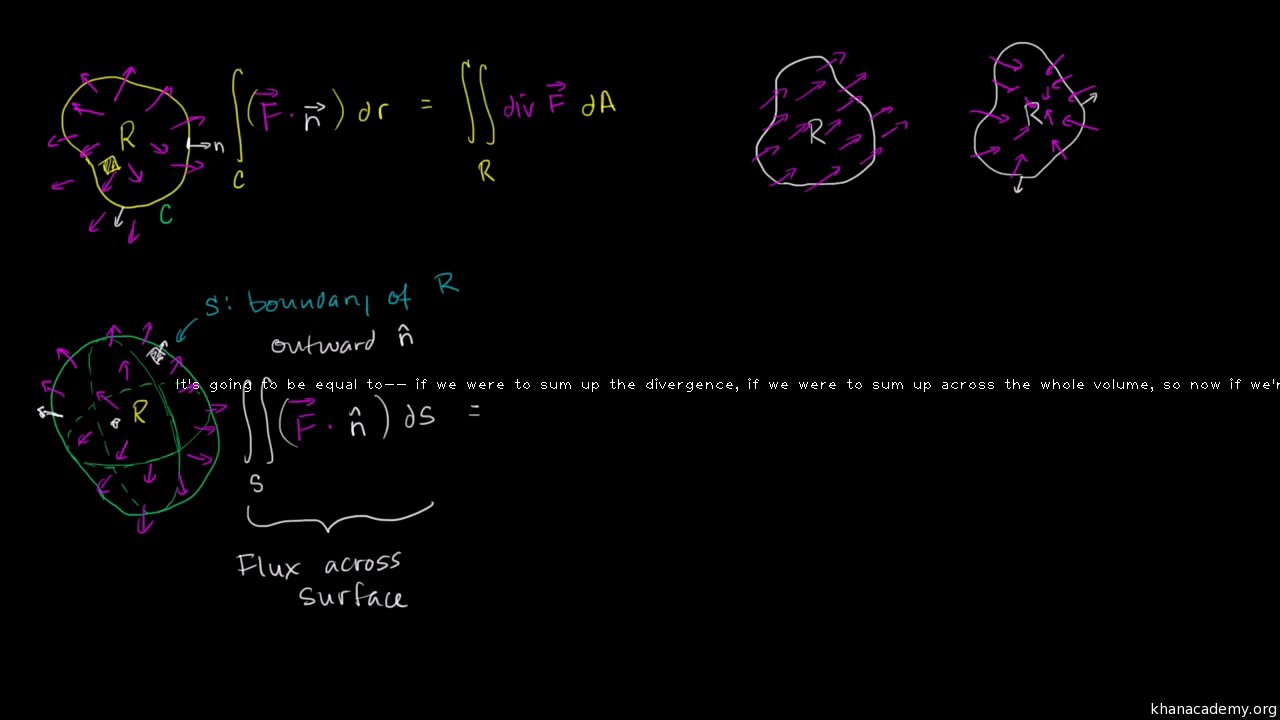 R
n
C
∫_C (F⃗ · n⃗) dr = ∬_R div F⃗ dA
R
R
S: boundary of R
outward n̂
It's going to be equal to-- if we were to sum up the divergence, if we were to sum up across the whole volume, so now if we'r
R
∬_S (F⃗ · n̂) dS =
Flux across
surface
khanacademy.org